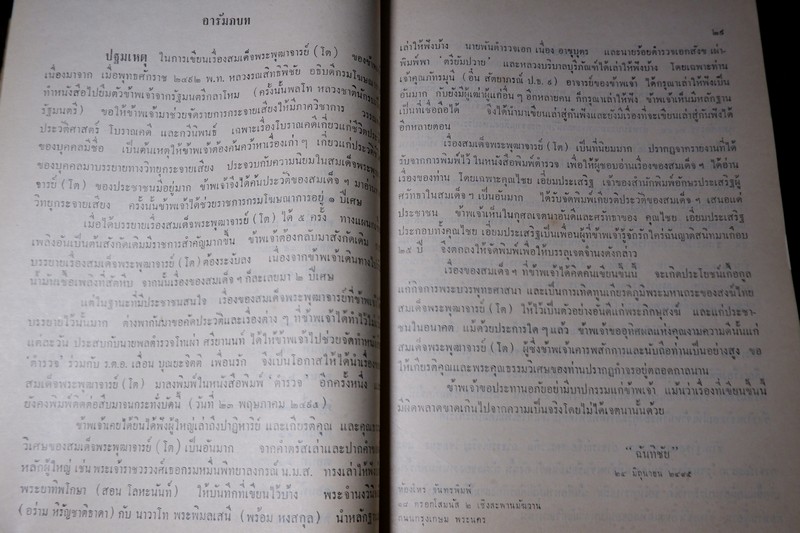 อารัมภบท
ปฐมเหตุ ในการเขียนเรื่องสมเด็จพระพุฒาจารย์ (โต) ของข้าพ
เนื่องมาจาก เมื่อพุทธศักราช ๒๔๙๒ พ.ท. หลวงรณสิทธิพิชัย อธิบดีกรมโฆษณา
ทำหนังสือไปยืมตัวข้าพเจ้าจากรัฐมนตรีกลาโหม (ครั้งนั้นพลโท หลวงชาตินักรบ
รัฐมนตรี) ขอให้ข้าพเจ้ามาช่วยจัดรายการกระจายเสียงให้มีภาควิชาการ วรรณ
ประวัติศาสตร์ โบราณคดี และกวีนิพนธ์ เฉพาะเรื่องโบราณคดีเกี่ยวแก่ชีวิต
ของบุคคลมีชื่อ เป็นต้นเหตุให้ข้าพเจ้าต้องค้นคว้าหาเรื่องเก่า ๆ เกี่ยวแก่ประวัติ
ของบุคคลมาบรรยายทางวิทยุกระจายเสียง ประจวบกับความนิยมในสมเด็จพระพุฒ
จารย์ (โต) ของประชาชนมีอยู่มาก ข้าพเจ้าจึงได้ค้นประวัติของสมเด็จ ๆ มา
วิทยุกระจายเสียง ครั้งนั้นข้าพเจ้าได้ช่วยราชการกรมโฆษณาการอยู่ ๑ ปีเศษ
เมื่อได้บรรยายเรื่องสมเด็จพระพุฒาจารย์ (โต) ได้ ๕ ครั้ง ทางแผนก
เพลิงอันเป็นต้นสังกัดเดิมมีราชการสำคัญมากขึ้น ข้าพเจ้าต้องกลับมาสังกัดเดิม
บรรยายเรื่องสมเด็จพระพุฒาจารย์ (โต) ต้องระงับลง เนื่องจากข้าพเจ้าเดินทางไป
น้ำมันเชื้อเพลิงที่สัตหีบ จากนั้นเรื่องของสมเด็จ ๆ ก็ละเลยมา ๒ ปีเศษ
แต่ในฐานะที่มีประชาชนสนใจ เรื่องของสมเด็จพระพุฒาจารย์ที่ข้าพเจ้า
บรรยายไว้นั้นมาก ต่างพากันมาขอคัดประวัติและเรื่องต่าง ๆ ที่ข้าพเจ้าได้ทำไว้
แต่ละวัน ประสบกับนายพลตำรวจโทเผ่า ศรียานนท์ ได้ให้ข้าพเจ้าไปช่วยจัดทำหนัง
ตำรวจ' ร่วมกับ ร.ต.อ. เลื่อน บุณยะจิตติ เพื่อนรัก จึงเป็นโอกาสให้ได้นำเรื่อง
สมเด็จพระพุฒาจารย์ (โต) มาลงพิมพ์ในหนังสือพิมพ์ 'ตำรวจ' อีกครั้งหนึ่ง
ยังคงพิมพ์ติดต่อสืบมาจนกระทั่งบัดนี้ (วันที่ ๒๓ พฤษภาคม ๒๔๙๕)
ข้าพเจ้าเคยได้ยินได้ฟังผู้ใหญ่เล่าถึงปาฏิหาริย์ และเกียรติคุณ และคุณธร
วิเศษของสมเด็จพระพุฒาจารย์ (โต) เป็นอันมาก จากคำตรัสเล่าและปากคำ
หลักผู้ใหญ่ เช่น พระเจ้าราชวรวงศ์เธอกรมหมื่นพิทยาลงกรณ์ น.ม.ส. ทรงเล่าให้ฟัง
พระยาทิพโกษา (สอน โลหะนันท์) ให้บันทึกที่เขียนไว้บ้าง พระจำนง
(อร่าม หิรัญชาติธาดา) กับ นาวาโท พระพิมลเสนี (พร้อม หงสกุล) นำหลักฐาน
๒๙
เล่าให้ฟังบ้าง นายพันตำรวจเอก เนื่อง อาขุบุตร และนายร้อยตำรวจเอกสังข์ เผ่า
พิมพ์พา 'ตรียัมปวาย' และหลวงบริบาลบุริภัณฑ์ได้เล่าให้ฟังบ้าง โดยเฉพาะท่าน
เจ้าคุณภัทรมุนี (อิ่น สัตยาภรณ์ ป.ธ. ๙) อาจารย์ของข้าพเจ้า ได้กรุณาเล่าให้ฟังเป็น
อันมาก กับยังมีผู้เฒ่าผู้แก่อื่น ๆ อีกหลายคน ก็กรุณาเล่าให้ฟัง ข้าพเจ้าเห็นมีหลักฐาน
เป็นที่เชื่อถือได้ จึงได้นำมาเขียนเล่าสู่กันฟังและยังมีเรื่องที่จะเขียนเล่าสู่กันฟังได้
อีกหลายตอน
เรื่องสมเด็จพระพุฒาจารย์ (โต) เป็นที่นิยมมาก ปรากฏจากรายงานที่ได้
รับจากการพิมพ์ไว้ ในหนังสือพิมพ์ตำรวจ เพื่อให้ผู้ชอบอ่านเรื่องของสมเด็จ ๆ ได้อ่าน
เรื่องของท่าน โดยเฉพาะคุณไชย เอี่ยมประเสริฐ เจ้าของสำนักพิมพ์อักษรประเสริฐผู้
ศรัทธาในสมเด็จ ๆ เป็นอันมาก ได้รับจัดพิมพ์เกียรติประวัติของสมเด็จ ๆ เสนอแด่
ประชาชน ข้าพเจ้าเห็นในกุศลเจตนาอันดีและศรัทธาของ คุณไชย เอี่ยมประเสริฐ
ประกอบทั้งคุณไชย เอี่ยมประเสริฐเป็นเพื่อนผู้ที่ข้าพเจ้ารู้จักรักใคร่ฉันญาติสนิทมาเกือบ
๒๕ ปี จึงตกลงให้จัดพิมพ์เพื่อให้บรรลุเจตจำนงดังกล่าว
เรื่องของสมเด็จ ๆ ที่ข้าพเจ้าได้คิดค้นเขียนขึ้นนี้ จะเกิดประโยชน์เกื้อกูล
แก่กิจการพระบวรพุทธศาสนา และเป็นการเทิดทูนเกียรติภูมิพระมหาเถระของสงฆ์ไทย
สมเด็จพระพุฒาจารย์ (โต) ให้ไว้เป็นตัวอย่างอันดีแก่พระภิกษุสงฆ์ และแก่ประชา-
ชนในอนาคต แม้ด้วยประการใด ๆ แล้ว ข้าพเจ้าขออุทิศผลแห่งคุณงามความดีนั้นแก่
สมเด็จพระพุฒาจารย์ (โต) ผู้ซึ่งข้าพเจ้าเคารพสักการะและนับถือท่านเป็นอย่างสูง ขอ
ให้เกียรติคุณและพระคุณธรรมวิเศษของท่านปรากฏก้องอยู่ตลอดกาลนาน
ข้าพเจ้าขอประทานอภัยอย่ามีบาปกรรมแก่ข้าพเจ้า แม้นว่าเรื่องที่เขียนขึ้นนี้
มีผิดพลาดขาดเกินไปจากความเป็นจริงโดยไม่ได้เจตนานั้นด้วย
"ฉันทิชัย"
๒๔ มิถุนายน ๒๔๙๕
ห้องโหร จันทรพิมพ์
๑๘ ตรอกโสมนัส ๒ เชิงสะพานมัฆวาน
ถนนกรุงเกษม พระนคร